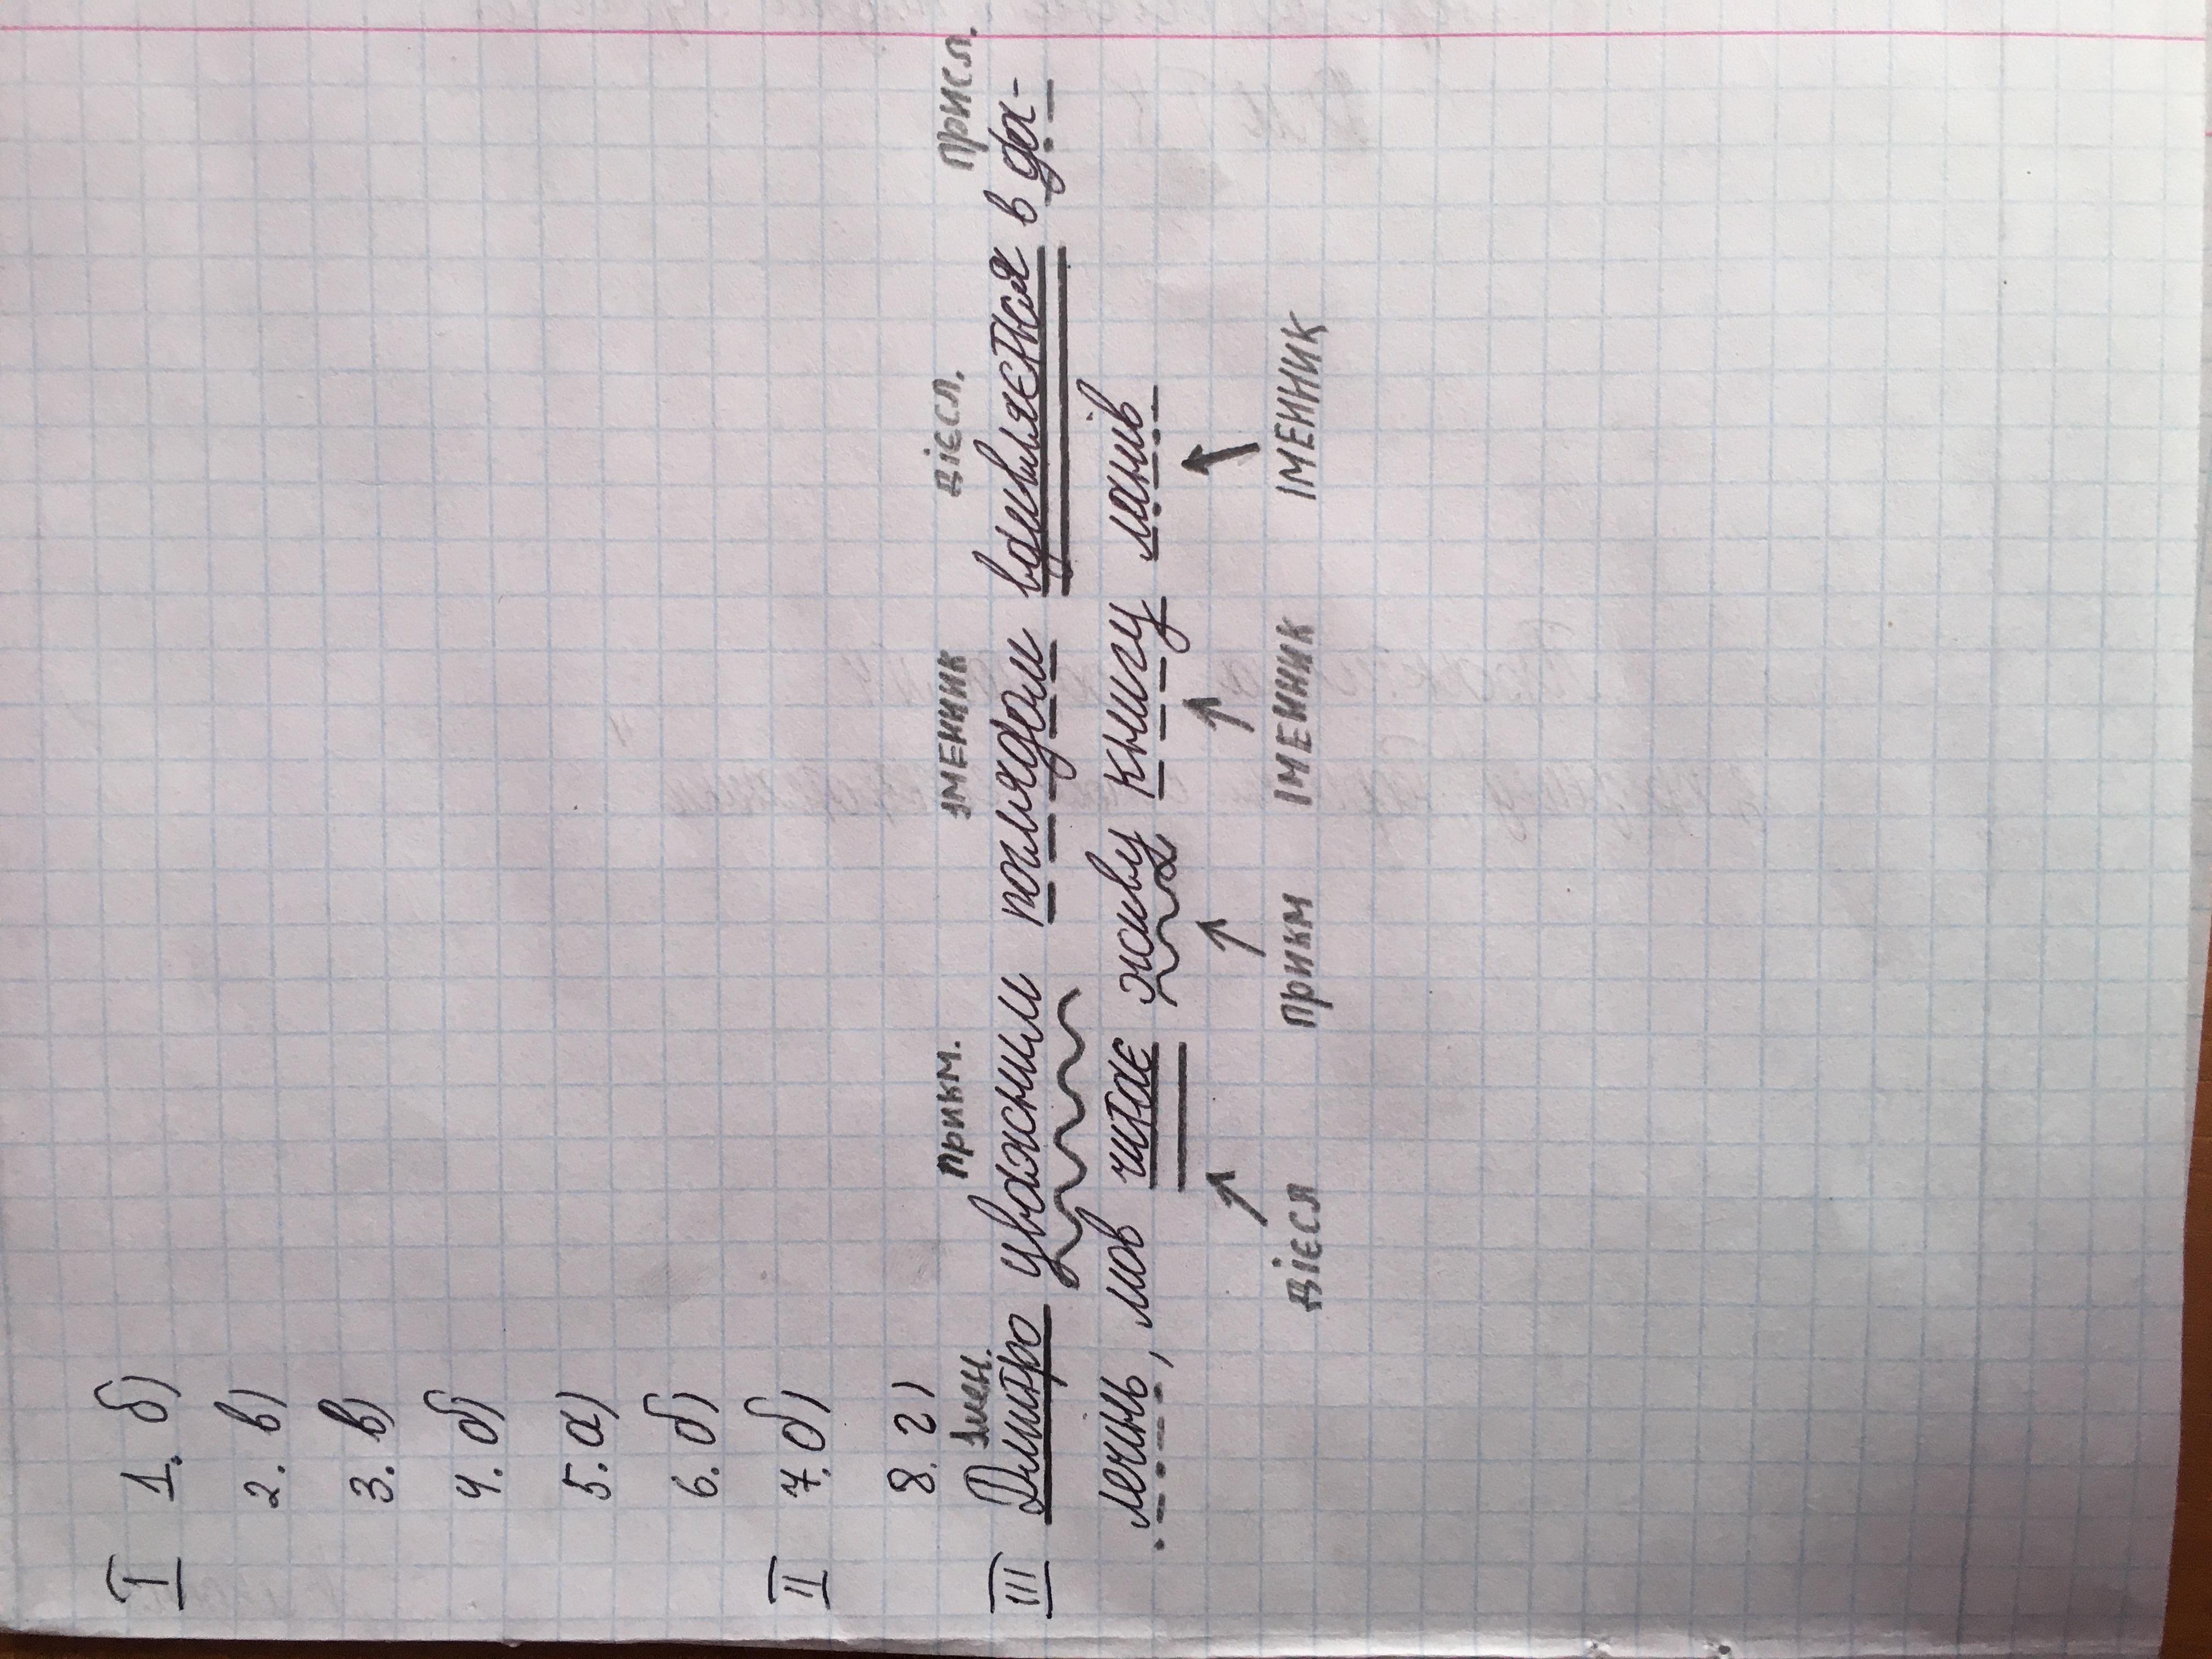 I 1. б)
2. в)
3. в)
4. б)
5. а)
6. б)
II 7. б)
8. г)
Імен. Прикм. Іменник Дієсл. Присл.
III Дмитро уважним поглядом вдивляється в да-
лечінь, мов читає живу книгу ланів
Дієсл Прикм Іменник Іменник